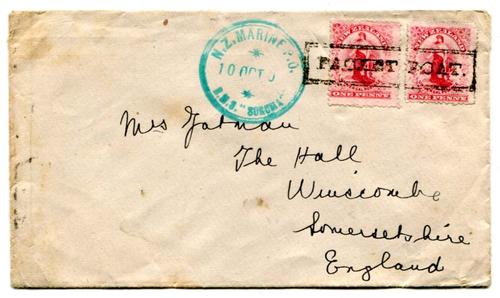 N.Z. MARINE P.O.
10 OCT
R.M.S. "SONOMA"
NEW ZEALAND
ONE PENNY
NEW ZEALAND
ONE PENNY
PACKET BOAT.
Mrs Yatman
The Hall
Winscombe
Somersetshire
England